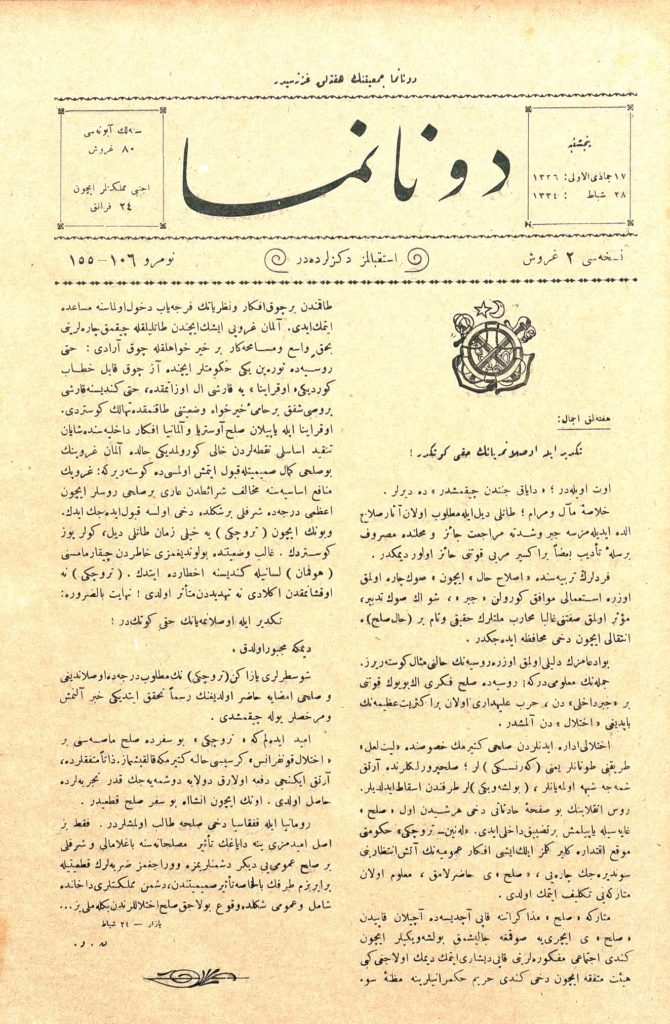 دونانما جمعيتنك هفته‌لق غزته‌سيدر
پنجشنبه
١٧ جماذى الاولى: ١٣٣٦
٢٨ شباط : ١٣٣٤
دونانما
سنه‌لك آبونه‌سى
٨٠ غروش
اجنبى مملكتلر ايچون
٢٤ فرانق
نسخه‌سى ٢ غروش
استقبالمز دكزلرده‌در
نومرو ١٠٦–١٥٥
هفته‌لق اجمال:
تكدير ايله اوصلانمه‌يانك حقى كوتكدر !
اوت اويله‌در؛ « داياق جنتدن چيقمشدر » ده ديرلر .
خلاصهٔ مآل ومرام؛ طاتلى ديل ايله مطلوب اولان آثار صلاح
الده ايديله‌مزسه جبر وشدته مراجعت جائز و محلنده مصروف
برسلهٔ تأديب بعضاً براكسير مربى قوتنى حائز اولور ديمكدر .
فردلرك تربيه‌سنده « اصلاح حال » ايچون ، صوك چاره اولمق
اوزره استعمالى موافق كورولن « جبر » ، شو آك صوك تدبير،
مؤثر اولمق صفتنى غالبا محارب ملتلرك حقيقى وتام بر (حال صلح) ه
انتقالى ايچون دخى محافظه ايده‌جكدر .
بوادعامزك دليلى اولمق اوزره روسيه‌نك حالنى مثال كوسته‌ريرز.
جمله‌نك معلومى دركه: روسيه‌ده صلح فكرى اك بويوك قوتنى
بر « جبر داخلى » دن ، حرب عليهدارى اولان براكثريت عظيمه‌نك
ياپديغى « اختلال » دن آلمشدر .
اختلالى اداره ايدنلردن صلحى كتيرمك خصوصنده « ليت لعل »
طريقنى طوتانلر يعنى (كه‌رنسكى) لر ؛ صلحپرورلكلرنده آرتق
شمه‌جه شبهه اوله‌يانلر ، (بولشه‌ويكى) لر طرفندن اسقاط ايدلديلر .
روس انقلابنك بو صفحهٔ حادثاتى دخى هرشيدن اول « صلح »
غايه‌سيله ياپيلمش برتضييق داخلى ايدى. « له‌نين – تروچكى» حكومتى
موقع اقتداره كلير كلمز ايلك ايشى افكار عموميه‌نك آتش انتظارينى
سوندیره‌جك چاره‌يى ، « صلح » ى حاضرلامق ، معلوم اولان
متاركه‌يى تكليف ايتمك اولدى .
متاركه « صلح » مذاكراتنه قاپى آچديسه‌ده آچيلان قاپيدن
« صلح » ى ايچرى‌يه صوقمغه چاليشه‌جق بولشه‌ويكيلر ايچون
كندى اجتماعى مفكوره‌لرينى قاپى ديشارى ايتمك ديمك اولاجغى كبى
هيئت متفقه ايچون دخى كندى حريم حكمرانيلرينه مظنهٔ سوء
طاقمندن برچوق افكار ونظرياتك فرجه‌ياب دخول اولماسنه مساعده
ايتمك ايدى. آلمان غروپى ايشك ايچندن طاتليلقله چيقمق چاره‌لرينى
بحق واسع ومسامحه‌كار بر خير خواهلقله چوق آرادى : حتى
روسيه‌ده توره‌ين يكى حكومتلر ايچنده آز چوق قابل خطاب
كورديكى « اوقراينا » يه قارشى ال اوزاتمقده، حتى كنديسنه قارشى
بروصى شفق برحامىٔ خيرخواه وضعيتنى طاقنمقده تهالك كوستردى.
اوقراينا ايله ياپيلان صلح آوستريا و آلمانيا افكار داخليه‌سنده شايان
تنقيد اساسلى نقطه‌لردن خالى كورولمديكى حالده آلمان غروپنك
بوصلحى كمال صميميتله قبول ايتمش اولمسى ده كوستريركه: غروپك
منافع اساسيه‌سنه مخالف شرائطدن عارى برصلحى روسلر ايچون
اعظمى درجه‌ده شرفلى برشكلده دخى اولسه قبول ايده‌جك ايدك.
وبونك ايچون (تروچكى) يه خيلى زمان طاتلى ديل، كولر يوز
كوستردك . غالب وضعيتنده بولوندیغمزى خاطردن چيقارمامسنى
(هوفمان) لسانيله كنديسنه اخطارده ايتدك . (تروچكى) نه
اوقشامقدن اكلادى نه تهديددن متأثر اولدى ! نهايت بالضروره:
تكدير ايله اوصلانمه‌يانك حقى كوتكدر !
ديمكه مجبور اولدق .
شو سطرلرى يازاركن (تروچكى) نك مطلوب درجه‌ده اوصلانديغنى
و صلحى امضايه حاضر اولديغنك رسماً تحقق ايتديكى خبر آلنمش
ومرخصلر يوله چيقمشدى .
اميد ايده‌لم كه « تروچكى » بو سفرده صلح ماصه‌سنى بر
« اختلال قونفرانس» كرسيسى حالنه كتيرمكه قالقيشماز. ذاتاً متفقلرده،
آرتق ايكنجى دفعه اولارق دولابه دوشمه‌يه‌جك قدر تجربه‌لرده
حاصل اولدى . اونك ايچون انشاالله بو سفر صلح قطعيدر .
رومانيا ايله قفقاسيا دخى صلحه طالب اولمشلردر . فقط بز
اصل اميدمزى ينه داياغك تأثير مصلحانه‌سنه باغلامالى و شرفلى
بر صلح عمومى‌يى ديكر دشمنلريمزه ووراجغمز ضربه‌لرك قطعيتيله
برابر بزم طرفك بالخاصه تأثير صميميتندن، دشمن مملكتلرى داخلنده
شامل وعمومى شكلده وقوع بولاجق صلح اختلاللرندن بكله‌ملى يز...
بازار – ٢٤ شباط
ن . و.